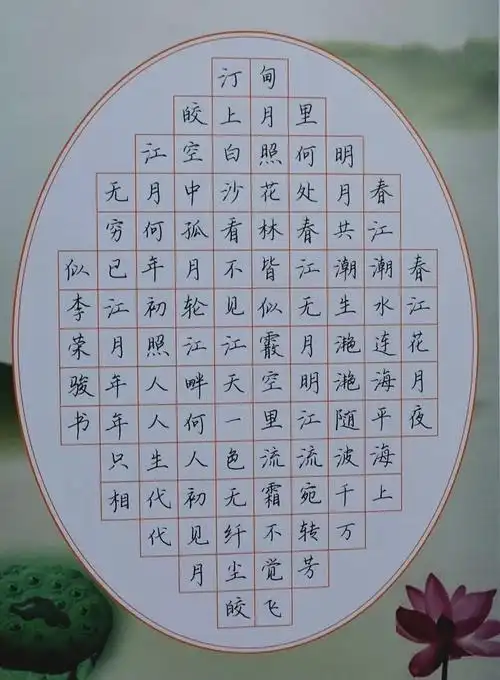 春江花月夜
春江潮水连海平海上
明月共潮生滟滟随波千万
里何处春江无月明江流宛转芳
甸月照花林皆似霰空里流霜不觉飞
汀上白沙看不见江天一色无纤尘皎
皎空中孤月轮江畔何人初见月
江月何年初照人人生代代
无穷已江月年年只相
似李荣骏书